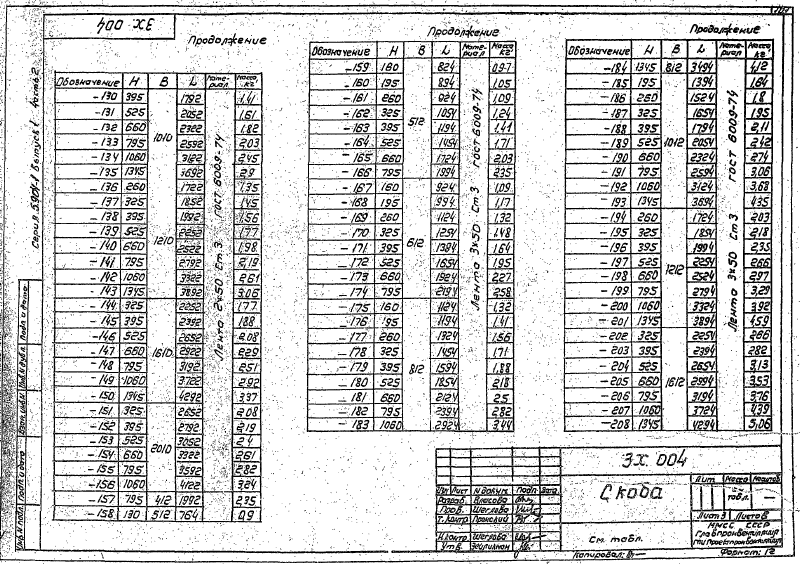 ЭХ 004
Продолжение
Обозначение Н В L Мате-риал Масса кг
-130 395 1010 1792 1,41
-131 525 2052 1,61
-132 660 2322 1,82
-133 795 2592 2,03
-134 1060 3122 2,45
-135 1345 3692 2,9
-136 260 1210 1722 1,35
-137 325 1852 1,45
-138 395 1992 1,56
-139 525 2252 1,77
-140 660 2522 1,98
-141 795 2792 2,19
-142 1060 3322 2,61
-143 1345 3892 3,06
-144 325 1610 2252 1,77
-145 395 2392 1,88
-146 525 2652 2,08
-147 660 2922 2,29
-148 795 3192 2,51
-149 1060 3722 2,92
-150 1345 4292 3,37
-151 325 2010 2652 2,08
-152 395 2792 2,19
-153 525 3052 2,4
-154 660 3322 2,61
-155 795 3592 2,82
-156 1060 4122 3,24
-157 795 412 1992 2,35
-158 130 512 764 0,9
Лента 2х50 Ст.3 ГОСТ 6009-74
Продолжение
Обозначение Н В L Мате-риал Масса кг
-159 160 512 824 0,97
-160 195 894 1,05
-161 260 924 1,09
-162 325 1054 1,24
-163 395 1194 1,41
-164 525 1454 1,71
-165 660 1724 2,03
-166 795 1994 2,35
-167 160 612 924 1,09
-168 195 994 1,17
-169 260 1124 1,32
-170 325 1254 1,48
-171 395 1394 1,64
-172 525 1654 1,95
-173 660 1924 2,27
-174 795 2194 2,58
-175 160 812 1124 1,32
-176 195 1194 1,41
-177 260 1324 1,56
-178 325 1454 1,71
-179 395 1594 1,88
-180 525 1854 2,18
-181 660 2124 2,5
-182 795 2394 2,82
-183 1060 2924 3,44
Лента 3х50 Ст.3 ГОСТ 6009-74
Продолжение
Обозначение Н В L Мате-риал Масса кг
-184 1345 812 3494 4,12
-185 195 1012 1394 1,64
-186 260 1524 1,8
-187 325 1654 1,95
-188 395 1794 2,11
-189 525 2054 2,42
-190 660 2324 2,74
-191 795 2594 3,06
-192 1060 3124 3,68
-193 1345 3694 4,35
-194 260 1212 1724 2,03
-195 325 1854 2,18
-196 395 1994 2,35
-197 525 2254 2,66
-198 660 2524 2,97
-199 795 2794 3,29
-200 1060 3324 3,92
-201 1345 3894 4,59
-202 325 1612 2254 2,66
-203 395 2394 2,82
-204 525 2654 3,13
-205 660 2994 3,53
-206 795 3194 3,76
-207 1060 3724 4,39
-208 1345 4294 5,06
Лента 3х50 Ст.3 ГОСТ 6009-74
Серия 5.904-1 Выпуск 1 Часть 2
ЭХ 004
Скоба
См. табл.
Лит. Масса Масштаб
табл. —
Лист 3 Листов
ММСС СССР
Изм Лист № докум. Подп. Дата
Разраб. Власова
Пров. Щеглова
Т.контр
Н.контр Щеглова
Утв.
Копировал: Формат: 12